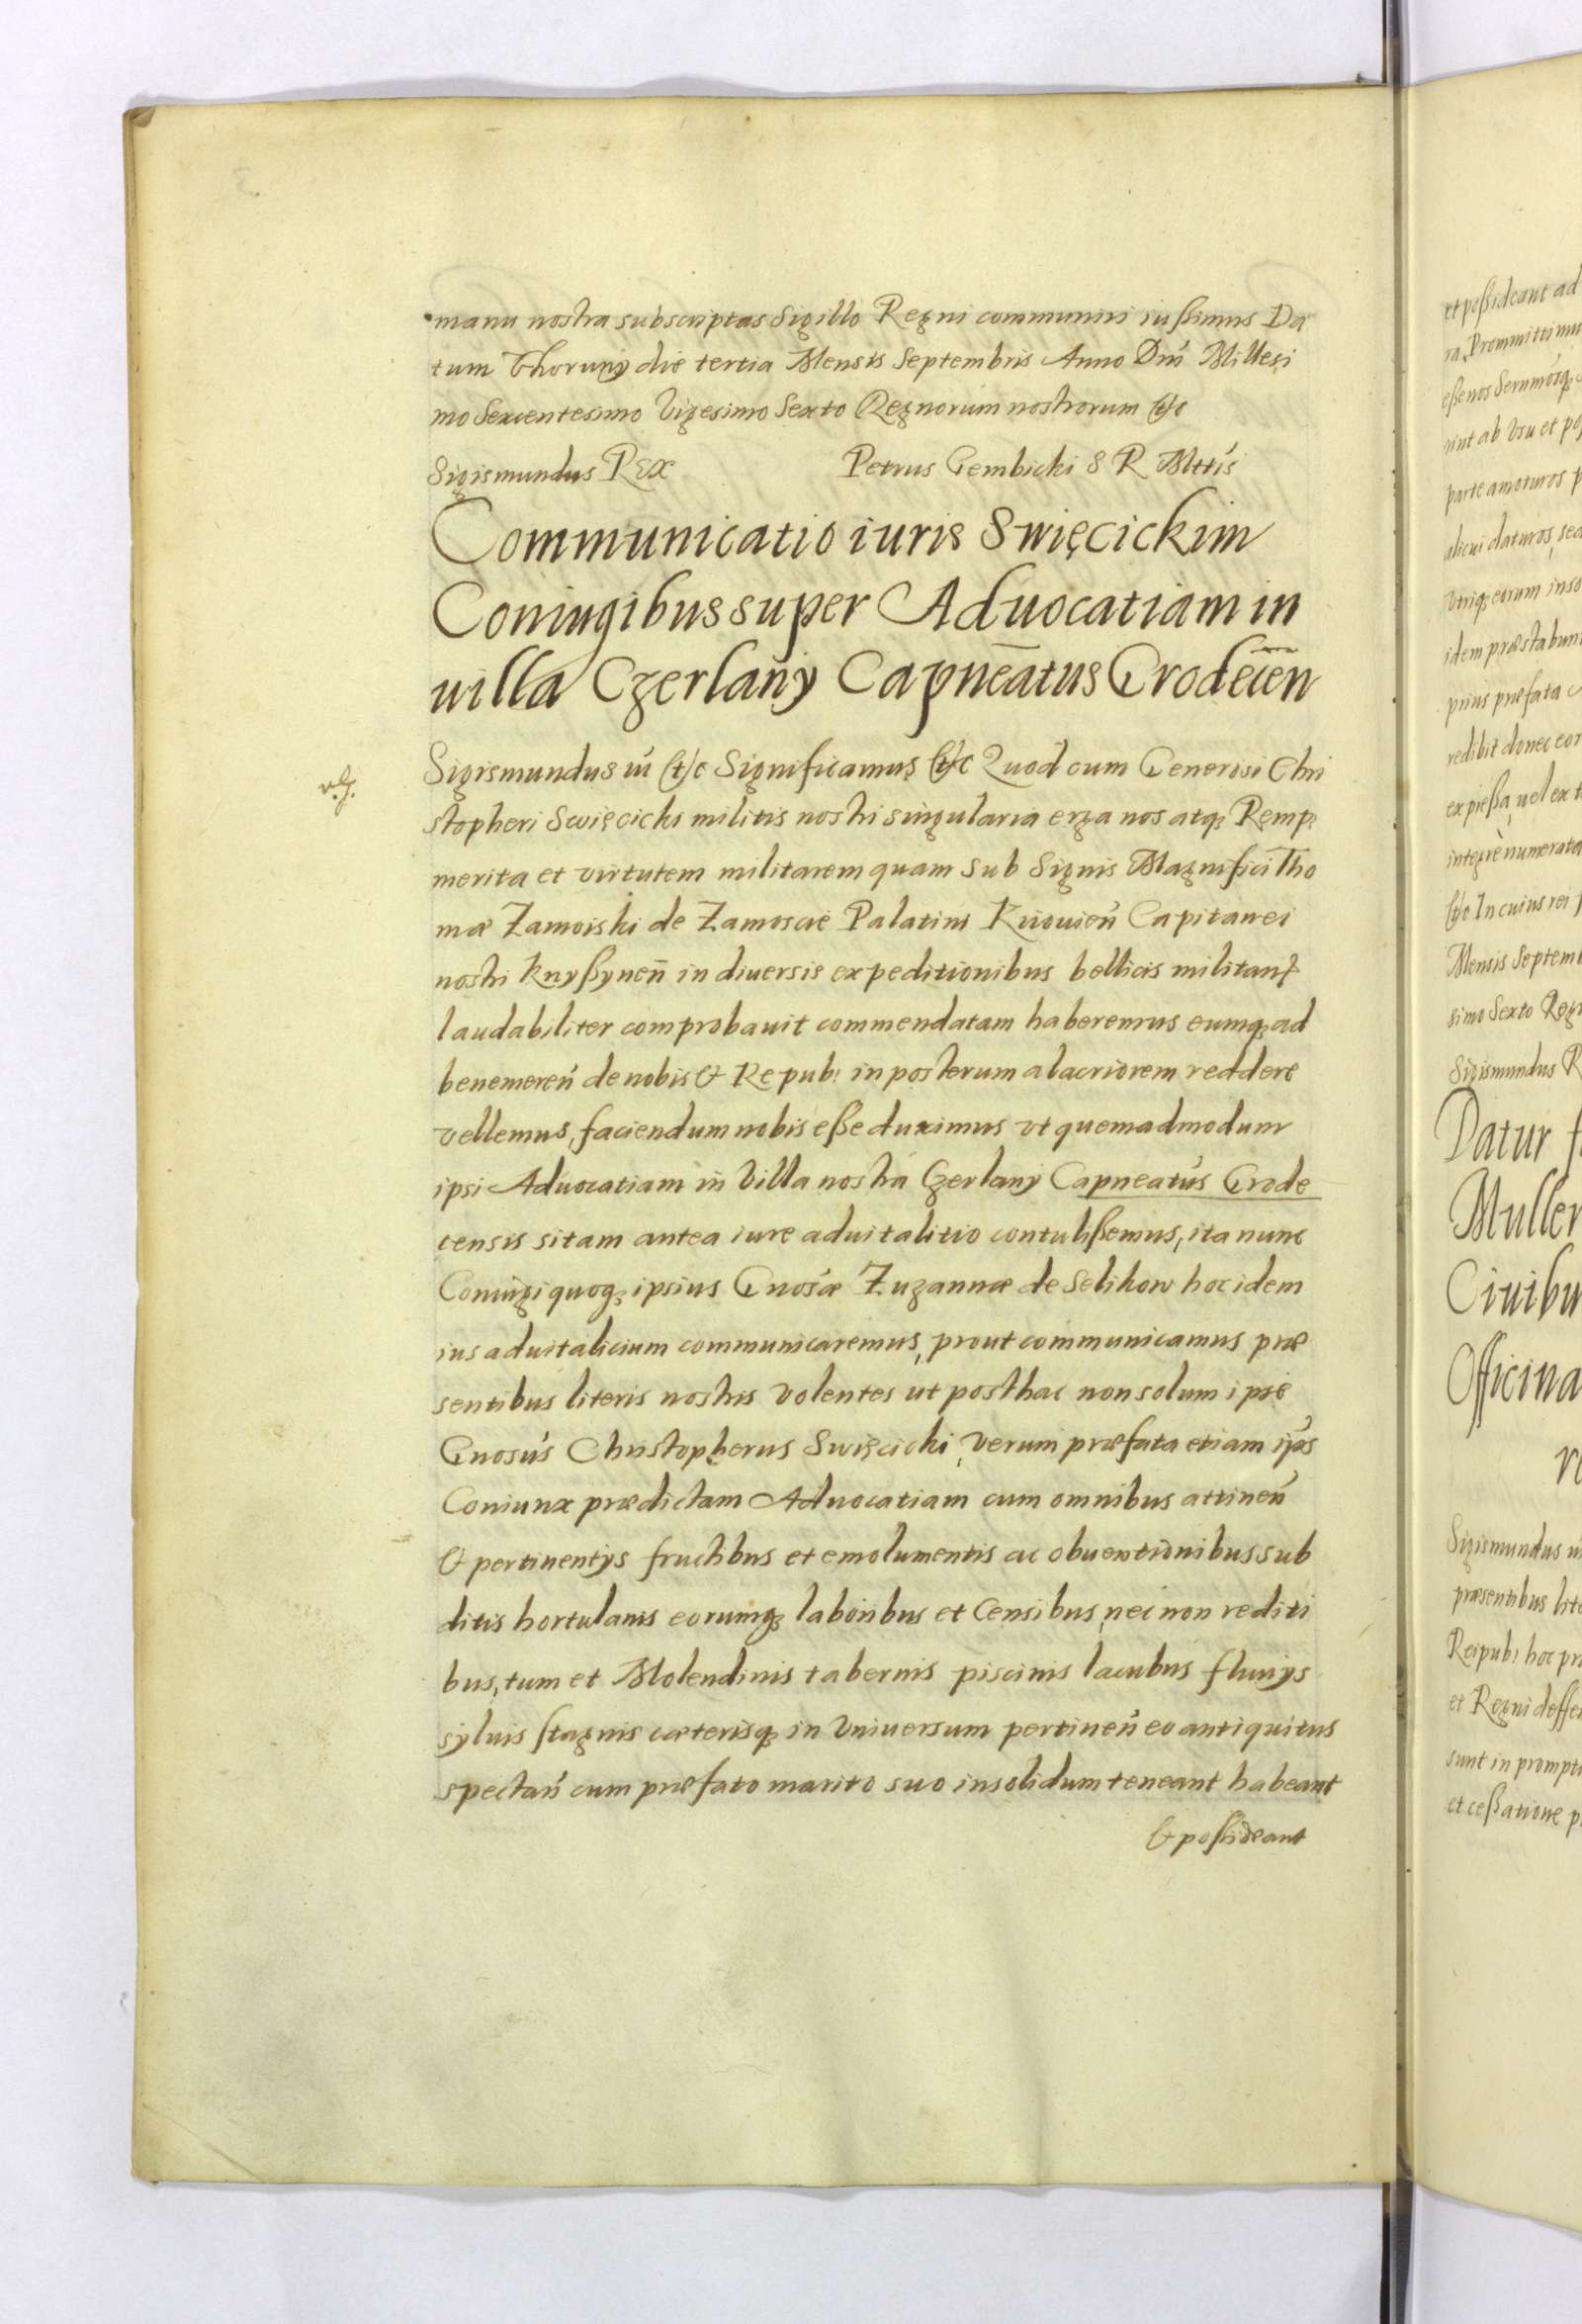 manu nostra subscriptas Sigillo Regni communiri iußimus Da
tum Thoruny die tertia Mensis Septembris Anno Dnī Millesi
mo Sexcentesimo Vigesimo Sexto Regnorum nostrorum &c
Sigismundus Rex Petrus Gembicki S R Mttis
Communicatio iuris Swięcickim
Coniugibus super Aduocatiam in
uilla Czerlany Capnēatus Grodecēn
v.g.
Sigismundus iii &c Significamus &c Quod cum Generosi Chri
stopheri Swięcicki militis nostri singularia erga nos atq; Remp:
merita et virtutem militarem quam sub Signis Magnifici Tho
mæ Zamoiski de Zamoscie Palatini Kiiouień Capitanei
nostri Knyßynen̄ in diuersis expeditionibus bellicis militan̄
laudabiliter comprobauit commendatam haberemus eumq; ad
benemereń de nobis & Repub: in posterum alacriorem reddere
vellemus, faciendum nobis eße duximus vt quemadmodum
ipsi Aduocatiam in Villa nostra Czerlany Capneatus Grode
censis sitam antea iure aduitalitio contulißemus, ita nunc
Coniugi quoq; ipsius Gnosæ Zuzannæ de Selikow hoc idem
ius aduitalicium communicaremus, prout communicamus præ
sentibus literis nostris volentes ut posthac non solum ipse
Gnosus Christopherus Swięcicki, verum præfata etiam ips
Coniunx prædictam Aduocatiam cum omnibus attineń
& pertinentys fructibus et emolumentis ac obuentionibus sub
ditis hortulanis eorumq; laboribus et Censibus, nec non rediti
bus, tum et Molendinis tabernis piscinis lacubus fluuijs
syluis stagnis cæterisq; in Vniuersum pertineń eo antiquitus
spectań cum præfato marito suo insolidum teneant habeant
& poßideant
et poßideant ad
ra, Prommittimu
eße nos Sernmosq;
rint ab Vsu et pos
parte amoturos p
alicui daturos, sed
Vtriq; eorum inso
idem præstabun
prius præfata
redibit donec eor
expießa, uel ex t
integrè numerata
&c In cuius rei
Mensis Septemb
simo Sexto Regn
Sigismundus R
Datur f
Muller
Ciuibu
Officina
Sigismundus iii
præsentibus lite
Reipub: hoc pr
et Regni deffe
sunt in promptu
et ceßatione p